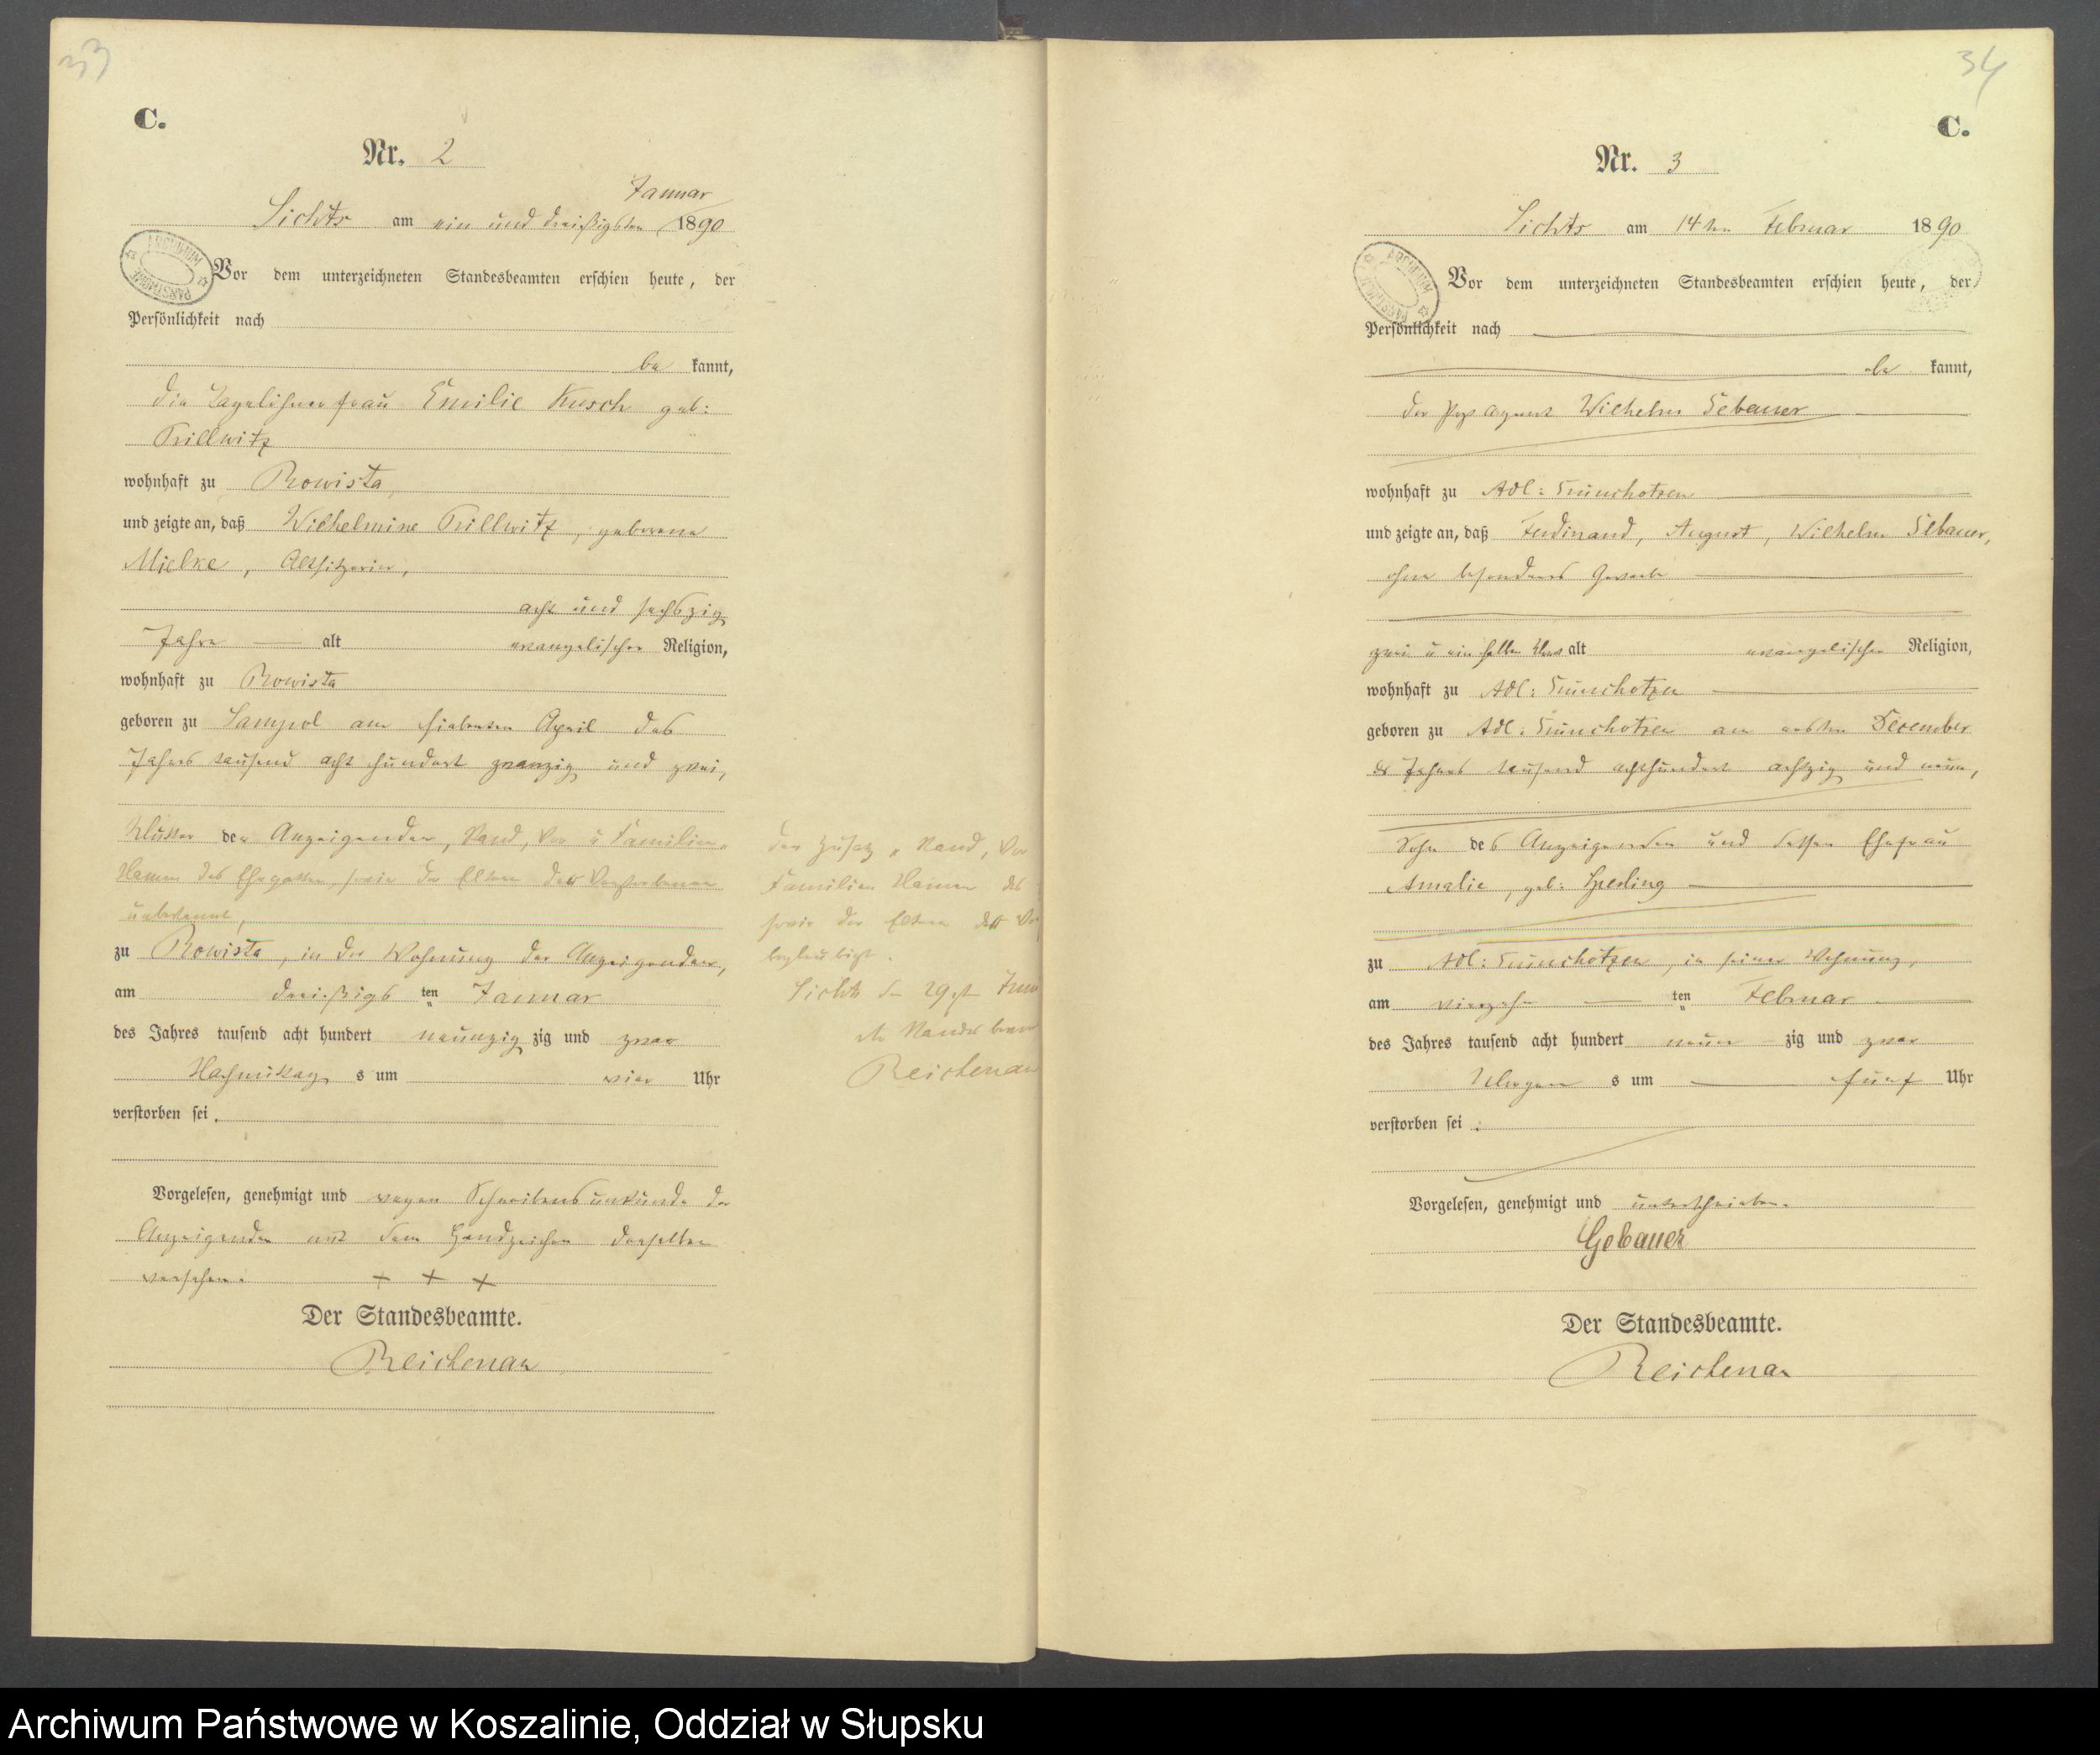 33
C.
Nr. 2
Januar
Lichts am ein und dreißigsten 1890
ARCHIWUM PAŃSTWOWE
Vor dem unterzeichneten Standesbeamten erschien heute, der
Persönlichkeit nach
be kannt,
die Tagelöhnerfrau Emilie Kusch geb:
Prillwitz
wohnhaft zu Rowista,
und zeigte an, daß Wilhelmine Prillwitz, geborene
Mielke, Altsitzerin,
acht und sechszig
Jahre alt evangelischer Religion,
wohnhaft zu Rowista
geboren zu am siebenten April des
Jahres tausend acht hundert zwanzig und zwei,
Mutter der Anzeigenden, Stand, Vor u Familien-
Namen des Ehegatten, sowie der Eltern der Verstorbenen
unbekannt,
zu Rowista, in der Wohnung der Anzeigenden,
am dreißigs ten Januar
des Jahres tausend acht hundert neunzig zig und zwar
Nachmittag s um vier Uhr
verstorben sei.
Vorgelesen, genehmigt und wegen Schreibensunkunde der
Anzeigenden mit dem Handzeichen derselben
versehen. + + +
Der Standesbeamte.
Reichenau
Der Zusatz "Stand, Vor
Familien Namen des
sowie der Eltern der Ver
beglaubigt.
Lichts den 29st
Der Standesbeam
Reichenau
34
C.
Nr. 3
Lichts am 14ten Februar 1890
ARCHIWUM PAŃSTWOWE
Vor dem unterzeichneten Standesbeamten erschien heute, der
Persönlichkeit nach
be kannt,
der Wilhelm Gebauer
wohnhaft zu Adl:
und zeigte an, daß Ferdinand, August, Wilhelm Gebauer,
ohne besonderes Gewerbe
zwei u ein halben alt evangelischer Religion,
wohnhaft zu Adl:
geboren zu Adl: am ersten December
des Jahres tausend achthundert achtzig und neun,
Sohn des Anzeigenden und dessen Ehefrau
Amalie, geb:
zu Adl: , in seiner Wohnung,
am vierzehn ten Februar
des Jahres tausend acht hundert neun zig und zwar
Morgen s um fünf Uhr
verstorben sei.
Vorgelesen, genehmigt und unterschrieben.
Gebauer
Der Standesbeamte.
Reichenau
Archiwum Państwowe w Koszalinie, Oddział w Słupsku